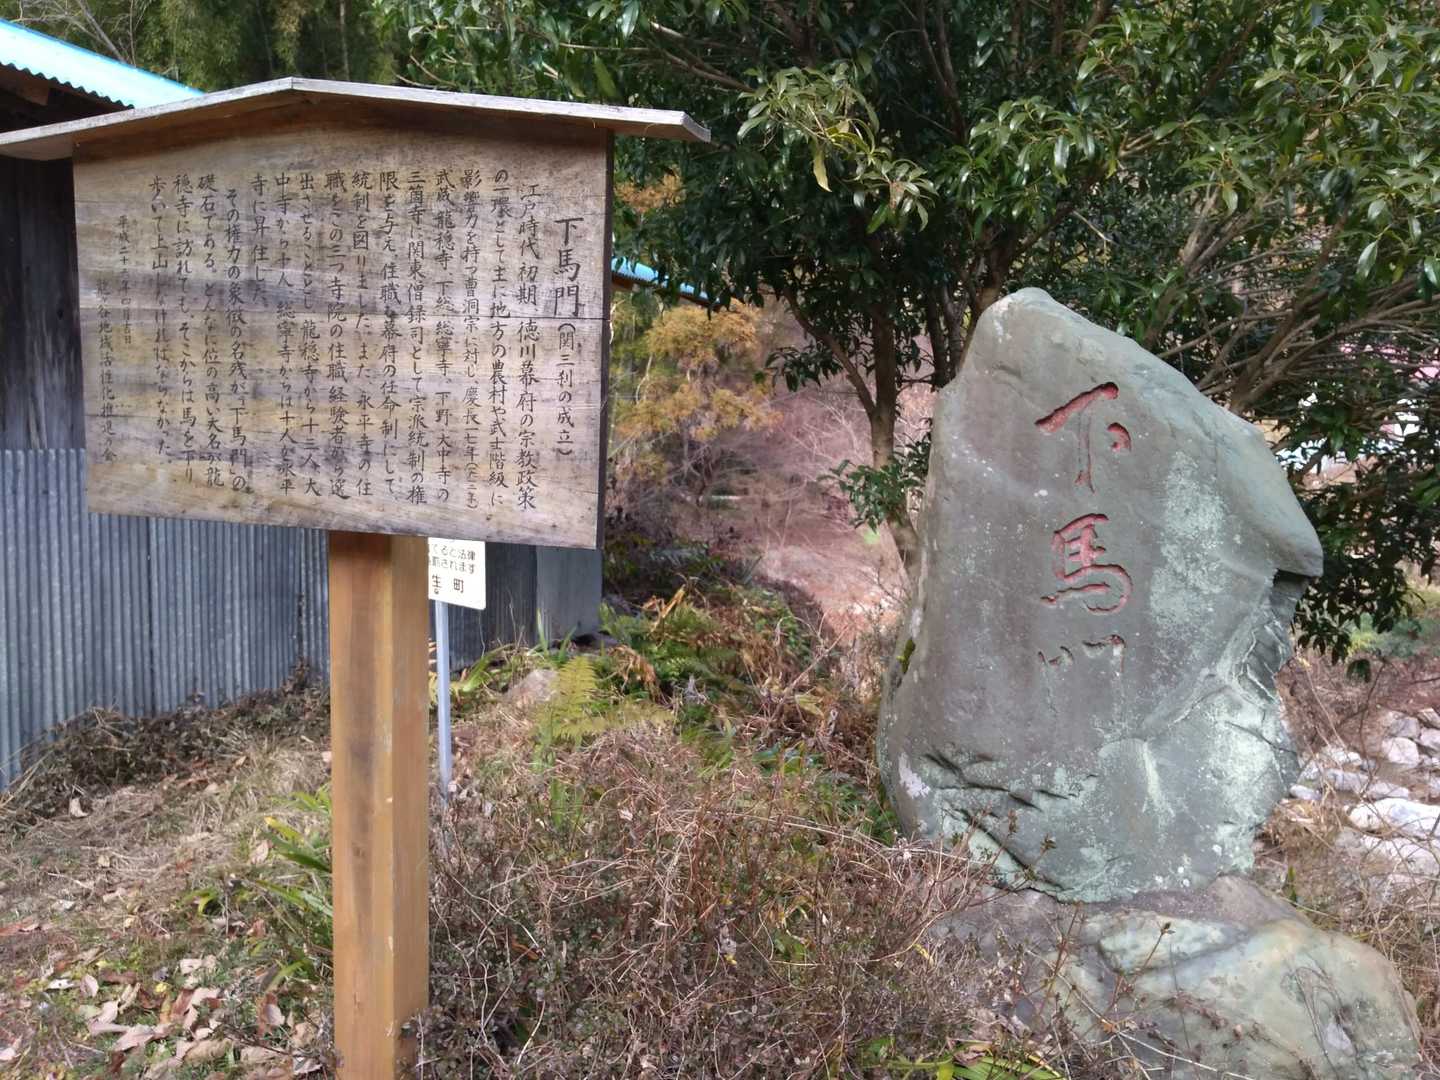 下馬門(関三刹の成立)
江戸時代初期、徳川幕府の宗教政策
の一環として主に地方の農村や武士階級に
影響力を持つ曹洞宗に対し、慶長十七年(一六一二年)
武蔵 龍穏寺、下総 総寧寺、下野 大中寺の
三箇寺に関東僧録司として宗派統制の権
限を与え、住職も幕府の任命制にして、
統制を図りました。また、永平寺の住
職をこの三つ寺院の住職経験者から選
出させることとし、龍穏寺から十三人、大
中寺から十人、総寧寺からは十人が永平
寺に昇住した。
その権力の象徴の名残が、「下馬門」の
礎石である。どんなに位の高い大名が龍
穏寺に訪れても、そこからは馬を下り
歩いて上山しなければならなかった。
平成二十二年四月吉日
龍ヶ谷地域活性化推進の会
てると法律
罰されます
生町
下馬門